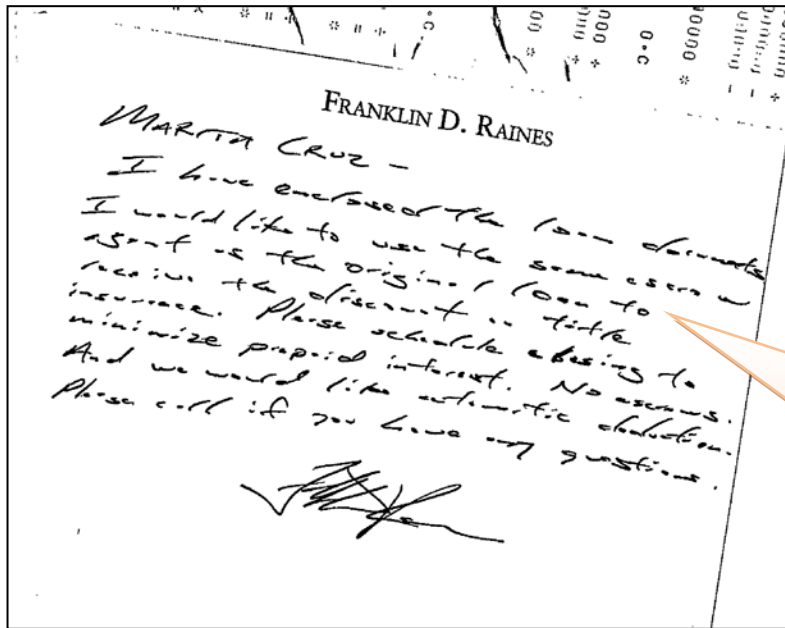 FRANKLIN D. RAINES
MARITA CRUZ –
I have enclosed the loan documents
I would like to use the same escrow
agent as the original loan to
receive the discount on title
insurance. Please schedule closing to
minimize prepaid interest. No escrows.
And we would like automatic deduction.
Please call if you have any questions.